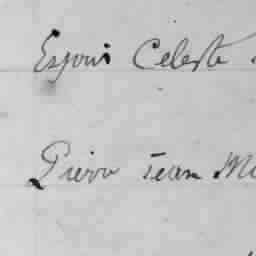 Espoir Celeste
Pierre Jean